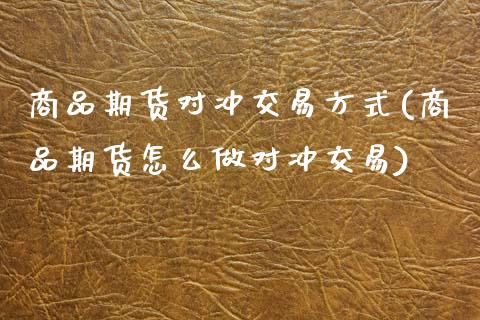 商品期货对冲交易方式(商
品期货怎么做对冲交易)